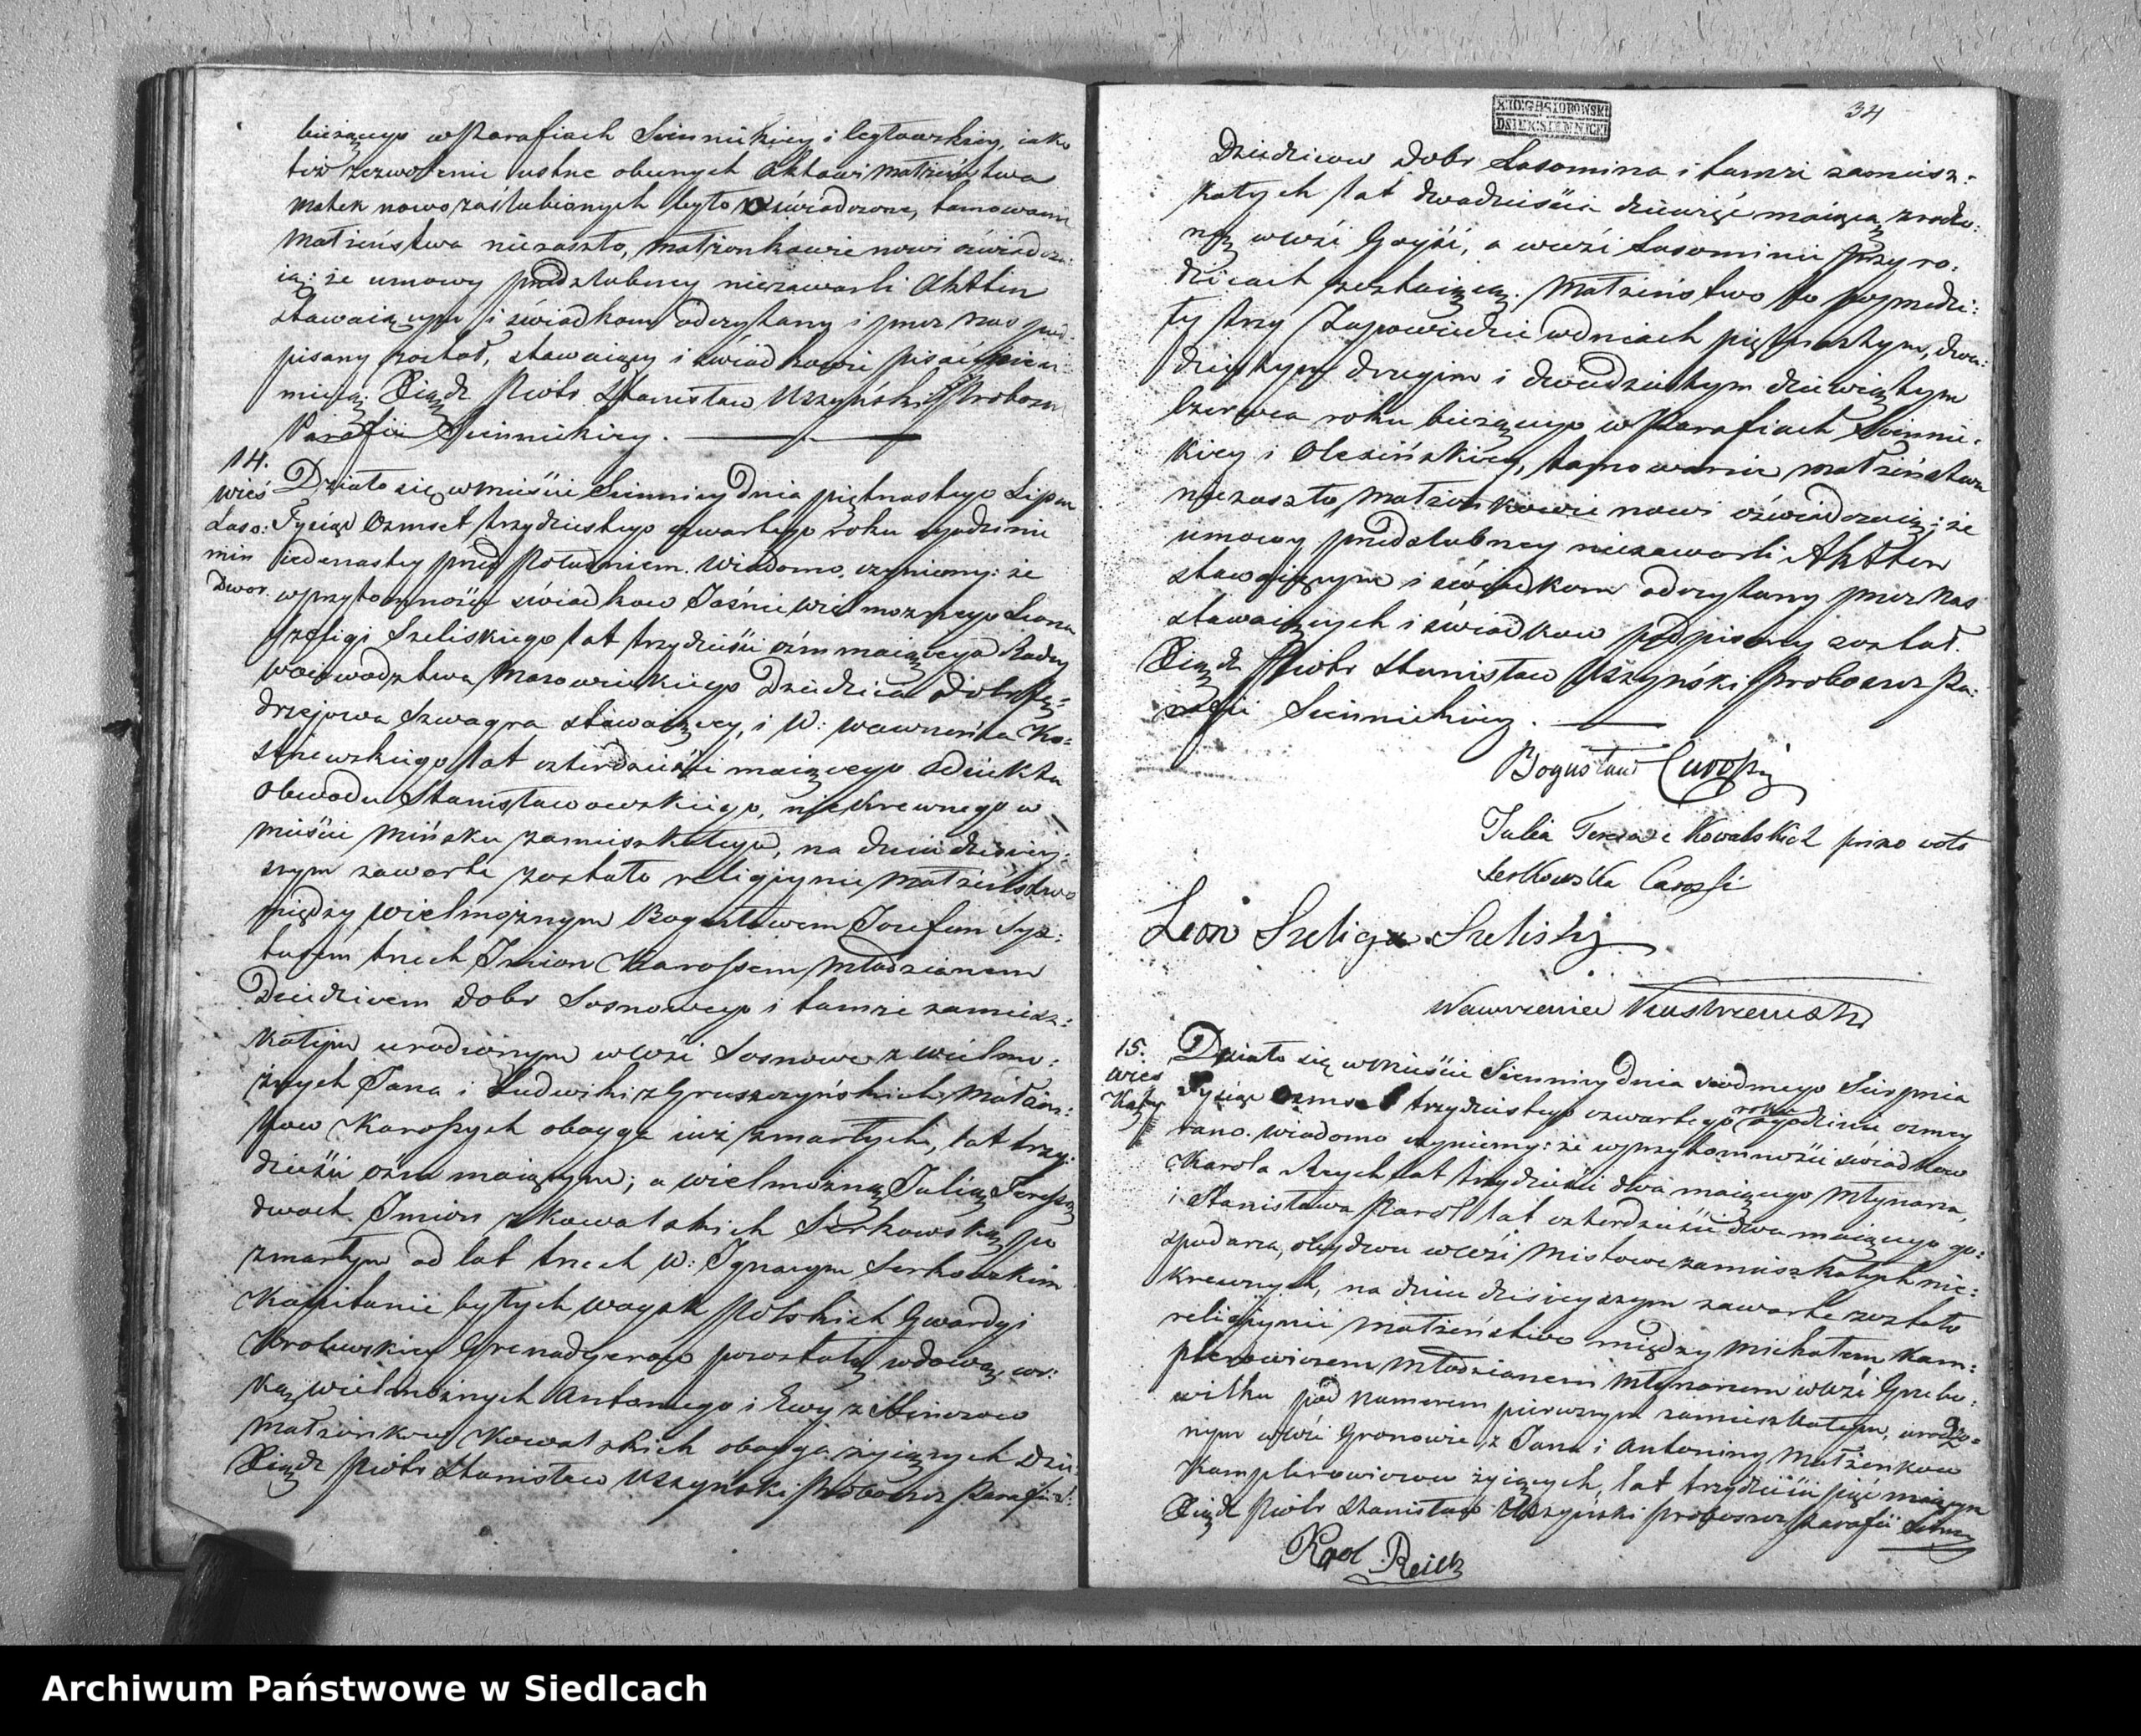 bieżącego w Parafiach Siennickiey i Cegłowskiey, iako
też zezwolenie ustne obecnych Aktowi Małżeństwa
Matek nowo zaślubionych było oświadczone, tamowanie
Małżeństwa niezaszło, Małżonkowie nowi oświadcza:
ią: że umowy przedślubney niezawarli Akt ten
stawaiącym i świadkom odczytany i przez nas pod:
pisany został, stawaiący i świadkowie pisać nieu:
mieią. Xiądz Piotr Stanisław Uszyński Proboszcz
Parafii Siennickiey.
14.
wieś
Laso:
min
Dwor.
Działo się w mieście Siennicy dnia piętnastego Lipca
Tysiąc Ozmset trzydziestego czwartego roku o godzinie
iedenastey przed Południem. Wiadomo czyniemy: że
w przytomności świadkow Jaśnie Wielmożnego Leona
Szeligi Szeliskiego lat trzydzieści ośm maiącego Radcy
Woiewodztwa Mazowieckiego Dziedzica Dobr Ję:
drzejowa Szwagra stawaiącey, i W: Wawrzeńca Ko:
strzewskiego lat czterdzieści maiącego Adiunkta
Obwodu Stanisławowskiego, niekrewnego w
mieście Mińsku zamieszkałego, na dniu dzisiey:
szym zawarte zostało religiynie Małżeństwo
między Wielmożnym Bogusławem Jozefem Syx:
tusem trzech Jmion Karossem Młodzianem
Dziedzicem Dobr Sosnowego i tamże zamiesz:
kałym urodzonym w wsi Sosnowe z Wielmo:
żnych Jana i Ludwiki z Gruszczyńskich Małżon:
kow Karossych oboyga iuż zmarłych, lat trzy:
dzieści ośm maiącym; a Wielmożną Julią Teressą
dwoch Jmion z Kowalskich Serkowską po
zmarłym od lat trzech W: Jgnacym Serkowskim
Kapitanie byłych Woysk Polskich Gwardyi
Krolewskiey Grenadyerow pozostałą wdową, cor:
ką Wielmożnych Antoniego i Ewy z
Małżonkow Kowalskich oboyga żyiących Dzie:
Xiądz Piotr Stanisław Uszyński Proboszcz Parafii S:
34
X IDZ GĄSIOROWSKI
DZIEK: SIENNICKI
Dziedzicow Dobr Lasomina i tamże zamiesz:
kałych lat dwadzieścia dziewięć maiącą zrodzo:
ną w wsi, a w wsi Lasominie przy ro:
dzicach zostaiącą. Małżeństwo to poprzedzi:
ły trzy Zapowiedzie w dniach piętnastym, dwu:
dziestym drugim i dwudziestym dziewiątym
Czerwca roku bieżącego w Parafiach Siennic:
kiey i Oleksińskiey, tamowanie Małżeństwa
niezaszło, Małżonkowie nowi oświadczaią; że
umowy przedślubney niezawarli Akt ten
stawaiącym i świadkom odczytany przez Nas
stawaiących i świadkow podpisany został.
Xiądz Piotr Stanisław Uszyński Proboszcz Pa:
rafii Siennickiey.
Bogusław Carossy
Julia Teresa z Kowalskich primo voto
Serkowska Carossi
Leon Szeliga Szeliski
Wawrzeniec Kostrzewski
15.
wieś
Działo się w mieście Siennicy dnia siodmego Sierpnia
Tysiąc Ozmset trzydziestego czwartego roku o godzinie osmey
rano. Wiadomo czyniemy: że w przytomności świadkow
Karola Rych lat trzydzieści dwa maiącego Młynarza,
i Stanisława Karol lat czterdzieści dwa maiącego go:
spodarza, obydwu w wsi Mistowe zamieszkałych nie:
krewnych, na dniu dzisieyszym zawarte zostało
religiynie Małżeństwo między Michałem Kam:
plerowiczem Młodzianem Młynarzem w wsi Grzebo:
wilku pod numerem pierwszym zamieszkałym, urodzo:
nym w wsi Gronowie, z Jana i Antoniny Małżonkow
Kamplerowiczow żyiących, lat trzydzieści pięć maiącym
Xiądz Piotr Stanisław Uszyński Proboszcz Parafii
Karol Reich
Archiwum Państwowe w Siedlcach